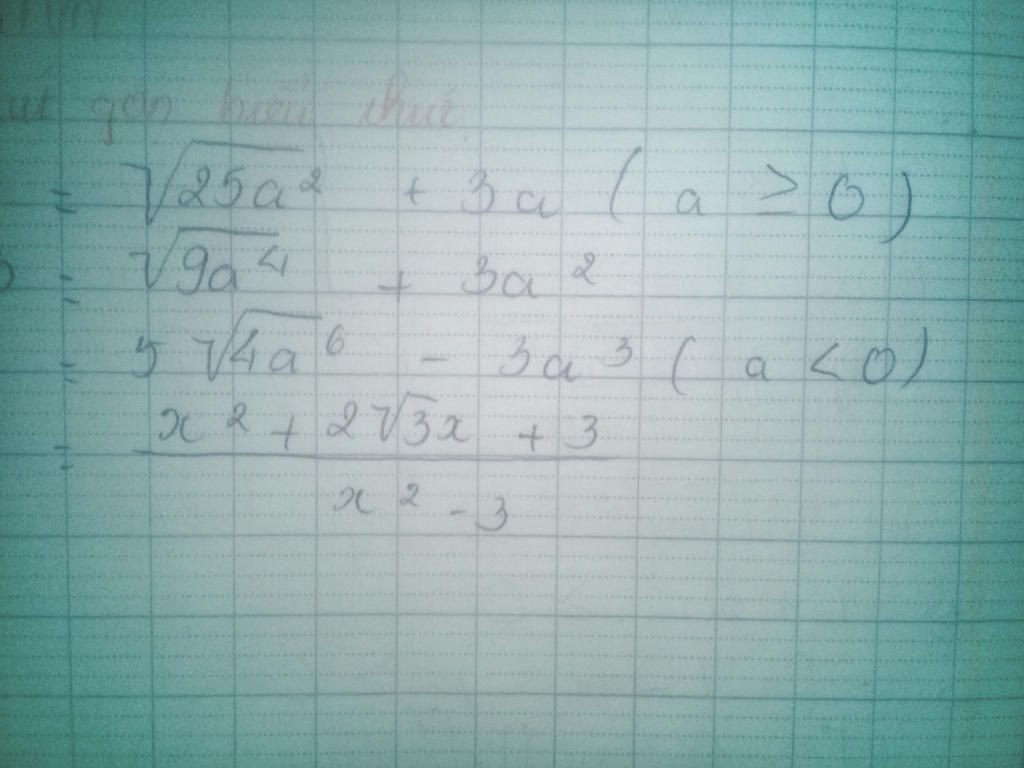 gọn biểu thức
= √25a² + 3a ( a ≥ 0 )
= √9a⁴ + 3a²
= 5 √4a⁶ - 3a³ ( a < 0 )
= x² + 2√3x + 3
x² - 3